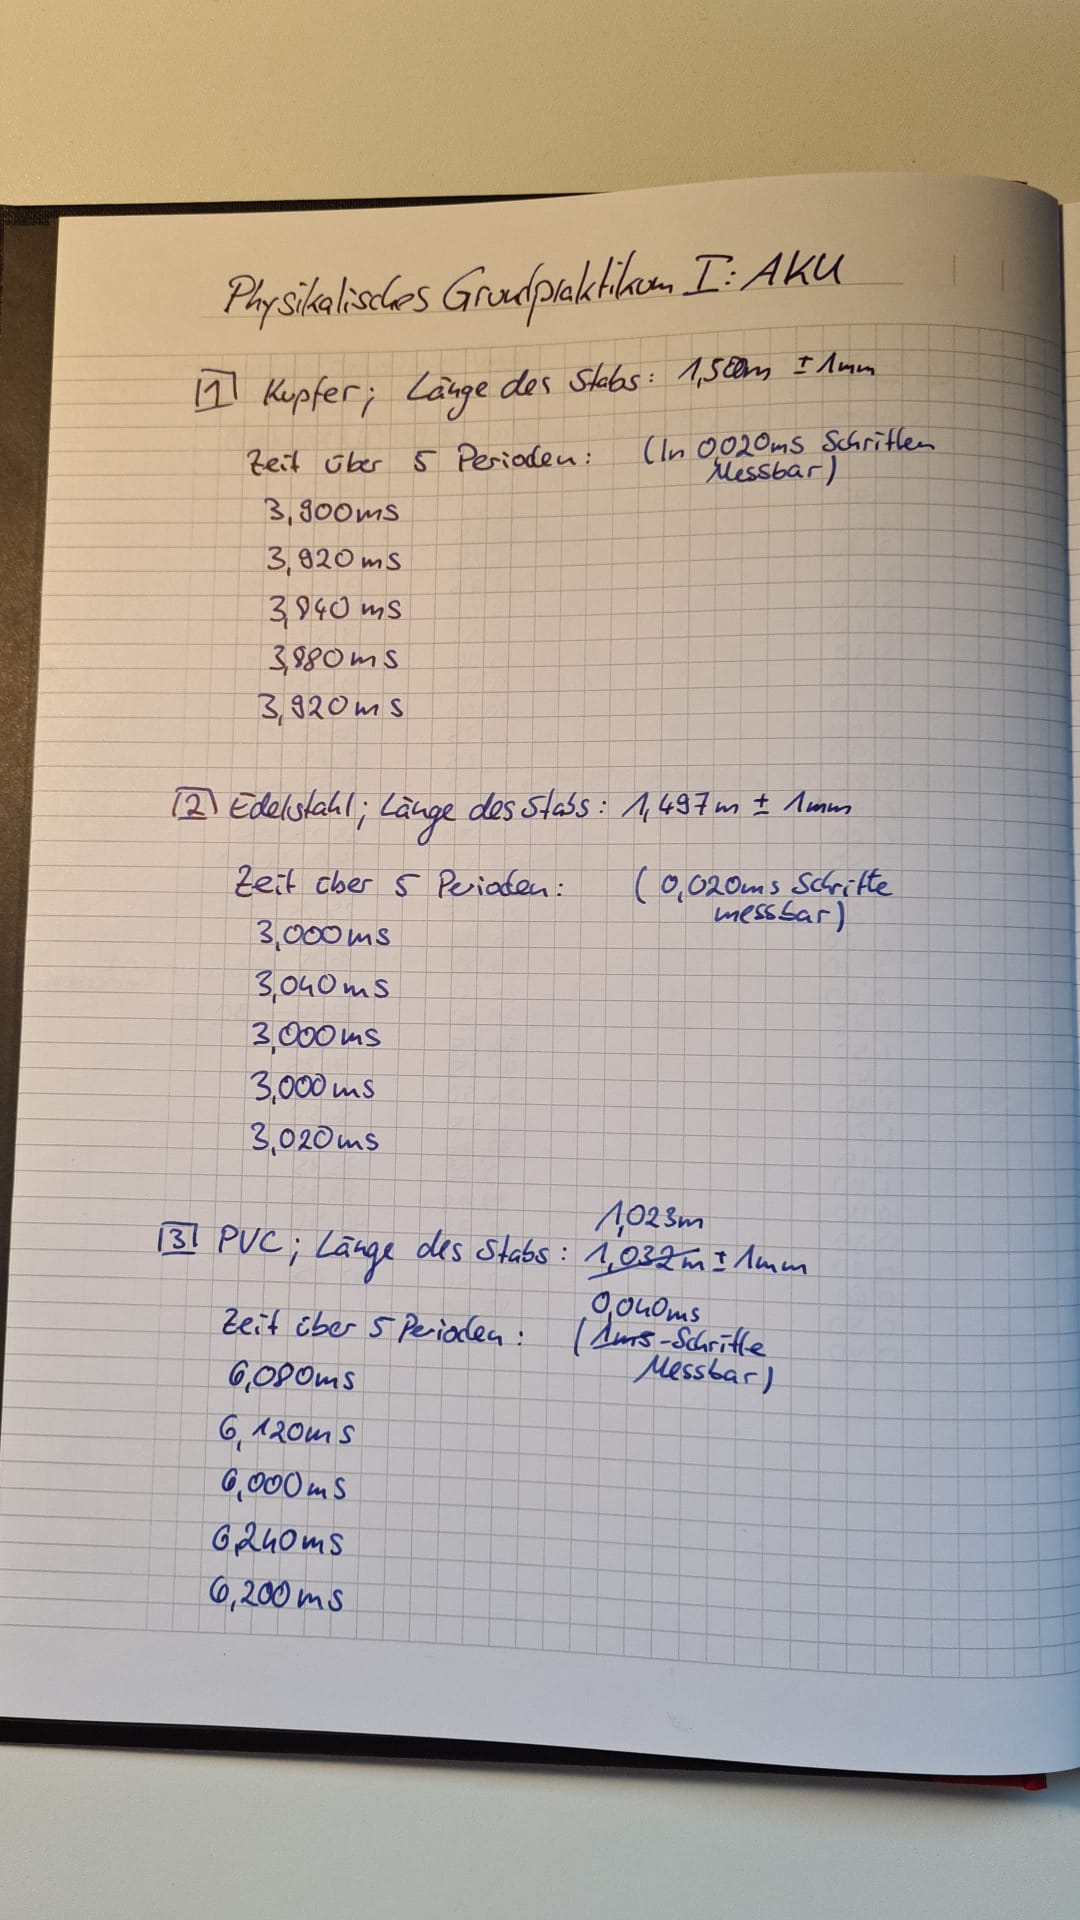 Physikalisches Grundpraktikum I: AKU
1 Kupfer; Länge des Stabs: 1,500m ± 1mm
Zeit über 5 Perioden: (In 0,020ms Schritten
Messbar)
3,900ms
3,920ms
3,940ms
3,980ms
3,920ms
2 Edelstahl; Länge des Stabs: 1,497m ± 1mm
Zeit über 5 Perioden: (0,020ms Schritte
messbar)
3,000ms
3,040ms
3,000ms
3,000ms
3,020ms
1,023m
3 PVC; Länge des Stabs: 1,032m ± 1mm
0,040ms
Zeit über 5 Perioden: (1ms-Schritte
Messbar)
6,080ms
6,120ms
6,000ms
6,240ms
6,200ms